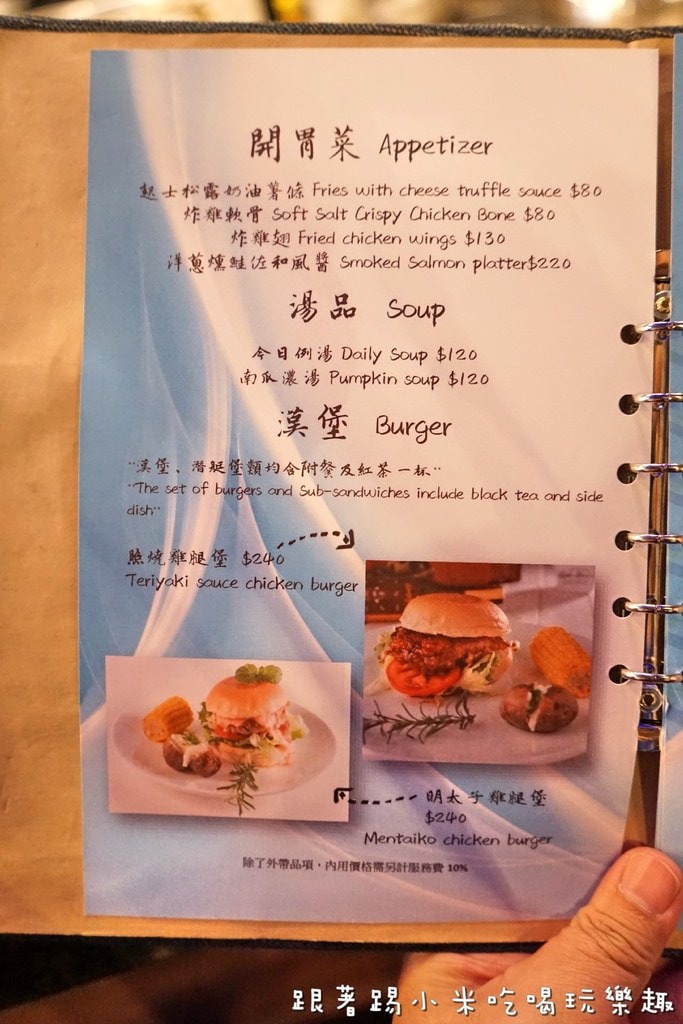 開胃菜 Appetizer
起士松露奶油薯條 Fries with cheese truffle sauce $80
炸雞軟骨 Soft Salt Crispy Chicken Bone $80
炸雞翅 Fried chicken wings $130
洋蔥燻鮭佐和風醬 Smoked Salmon platter$220
湯品 Soup
今日例湯 Daily Soup $120
南瓜濃湯 Pumpkin soup $120
漢堡 Burger
¨漢堡、潛艇堡類均含附餐及紅茶一杯¨
¨The set of burgers and Sub-sandwiches include black tea and side
dish¨
照燒雞腿堡 $240
Teriyaki sauce chicken burger
明太子雞腿堡
$240
Mentaiko chicken burger
除了外帶品項，內用價格需另計服務費 10%
跟著踢小米吃喝玩樂趣